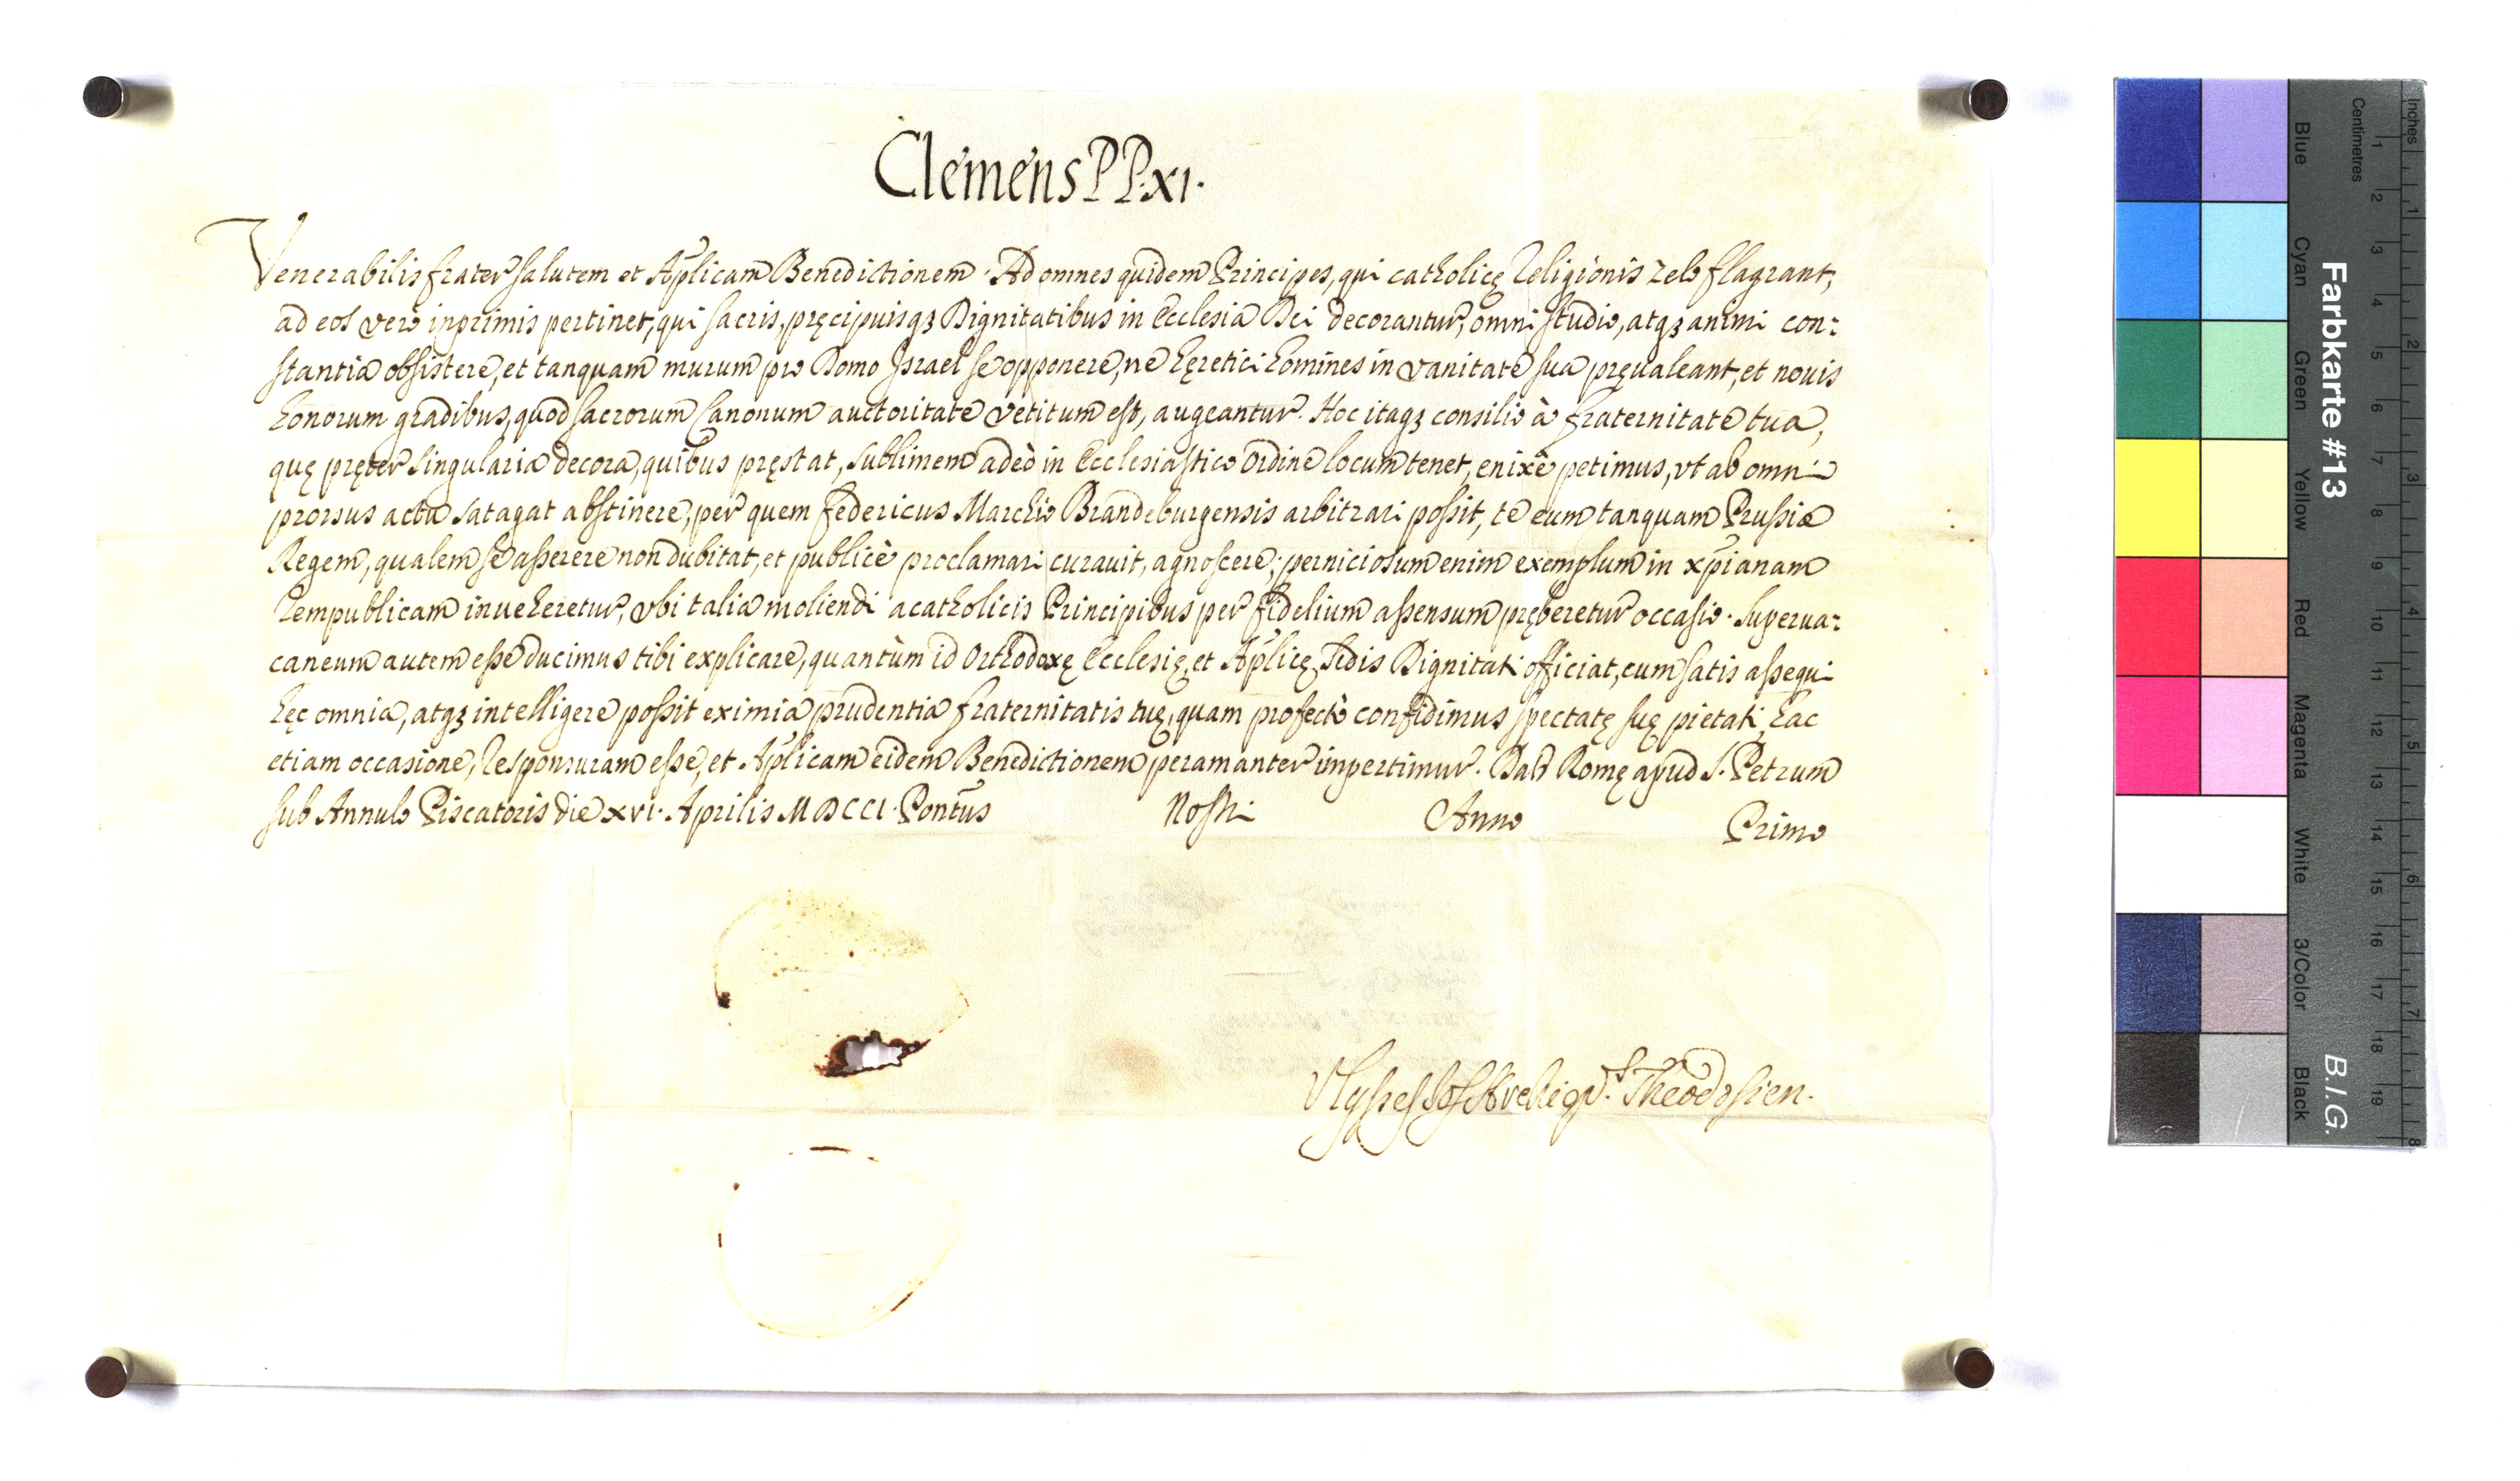 Clemens PP. XI.
Venerabilis frater salutem et Aplicam Benedictionem. Ad omnes quidem Principes, qui catholicę Religionis zelo flagrant,
ad eos verò inprimis pertinet, qui sacris, pręcipuisqз Dignitatibus in Ecclesia Dei decorantur, omni studio, atqз animi con:
stantia obsistere, et tanquam murum pro Domo Israel se opponere, ne hęretici homines in vanitate sua pręualeant, et nouis
honorum gradibus, quod sacrorum Canonum auctoritate vetitum est, augeantur. Hoc itaqз consilio à fraternitate tua,
quę pręter singularia decora, quibus pręstat, sublimem adeò in Ecclesiastico Ordine locum tenet, enixè petimus, vt ab omni
prorsus actu satagat abstinere, per quem Federicus Marchio Brandeburgensis arbitrari possit, te eum tanquam Prussiæ
Regem, qualem se asserere non dubitat, et publicè proclamari curauit, agnoscere; perniciosum enim exemplum in xpianam
Rempublicam inueheretur, vbi talia moliendi acatholicis Principibus per fidelium assensum pręberetur occasio. Superua:
caneum autem esse ducimus tibi explicare, quantùm id Orthodoxę Ecclesię, et Aplicę Sedis Dignitati officiat, cum satis assequi
hęc omnia, atqз intelligere possit eximia prudentia fraternitatis tuę, quam profectò confidimus spectatę suę pietati, hac
etiam occasione, responsuram esse, et Aplicam eidem Benedictionem peramanter impertimur. Dat Romę apud S. Petrum
sub Annulo Piscatoris die XVI. Aprilis MDCCI. Pontus Nostri Anno Primo
Ulysses Jos Archiepus Theodosien.
Farbkarte #13
B.I.G.
Blue Cyan Green Yellow Red Magenta White 3/Color Black
Centimetres 1 2 3 4 5 6 7 8 9 10 11 12 13 14 15 16 17 18 19
Inches 1 2 3 4 5 6 7 8